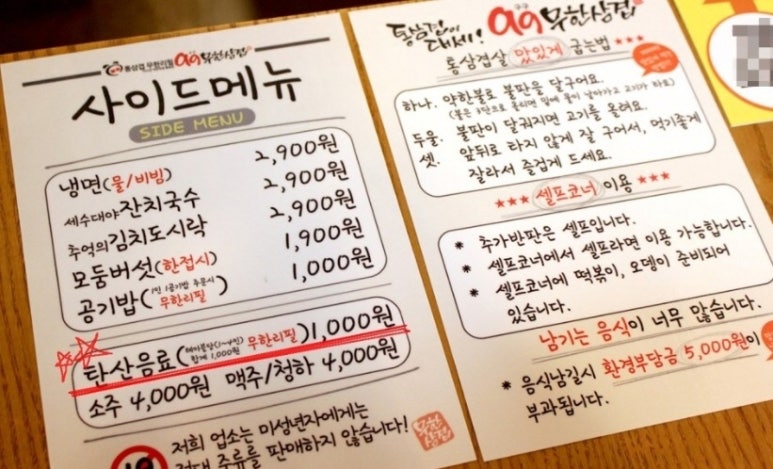 통삼겹 무한리필 99무한삼겹
사이드메뉴
SIDE MENU
냉면(물/비빔) 2,900원
세수대야잔치국수 2,900원
추억의김치도시락 2,900원
모둠버섯(한접시) 1,900원
공기밥(1인 1공기밥 주문시 무한리필) 1,000원
탄산음료(테이블당(1~4인) 합계 1,000원 무한리필)1,000원
소주 4,000원 맥주/청하 4,000원
19
저희 업소는 미성년자에게는
절대 주류를 판매하지 않습니다!
무한삼겹
통삼겹이 대세! 99 구구 무한삼겹
통삼겹살 맛있게 굽는법
하나. 약한불로 불판을 달구어요.
두울. 불판이 달궈지면 고기를 올려요.
셋. 앞뒤로 타지 않게 잘 구어서, 먹기좋게
잘라서 즐겁게 드세요.
★★★ 셀프코너 이용 ★★★
* 추가반판은 셀프입니다.
* 셀프코너에서 셀프라면 이용 가능합니다.
* 셀프코너에 떡볶이, 오뎅이 준비되어
있습니다.
남기는 음식이 너무 많습니다.
* 음식남길시 환경부담금 5,000원이
부과됩니다.